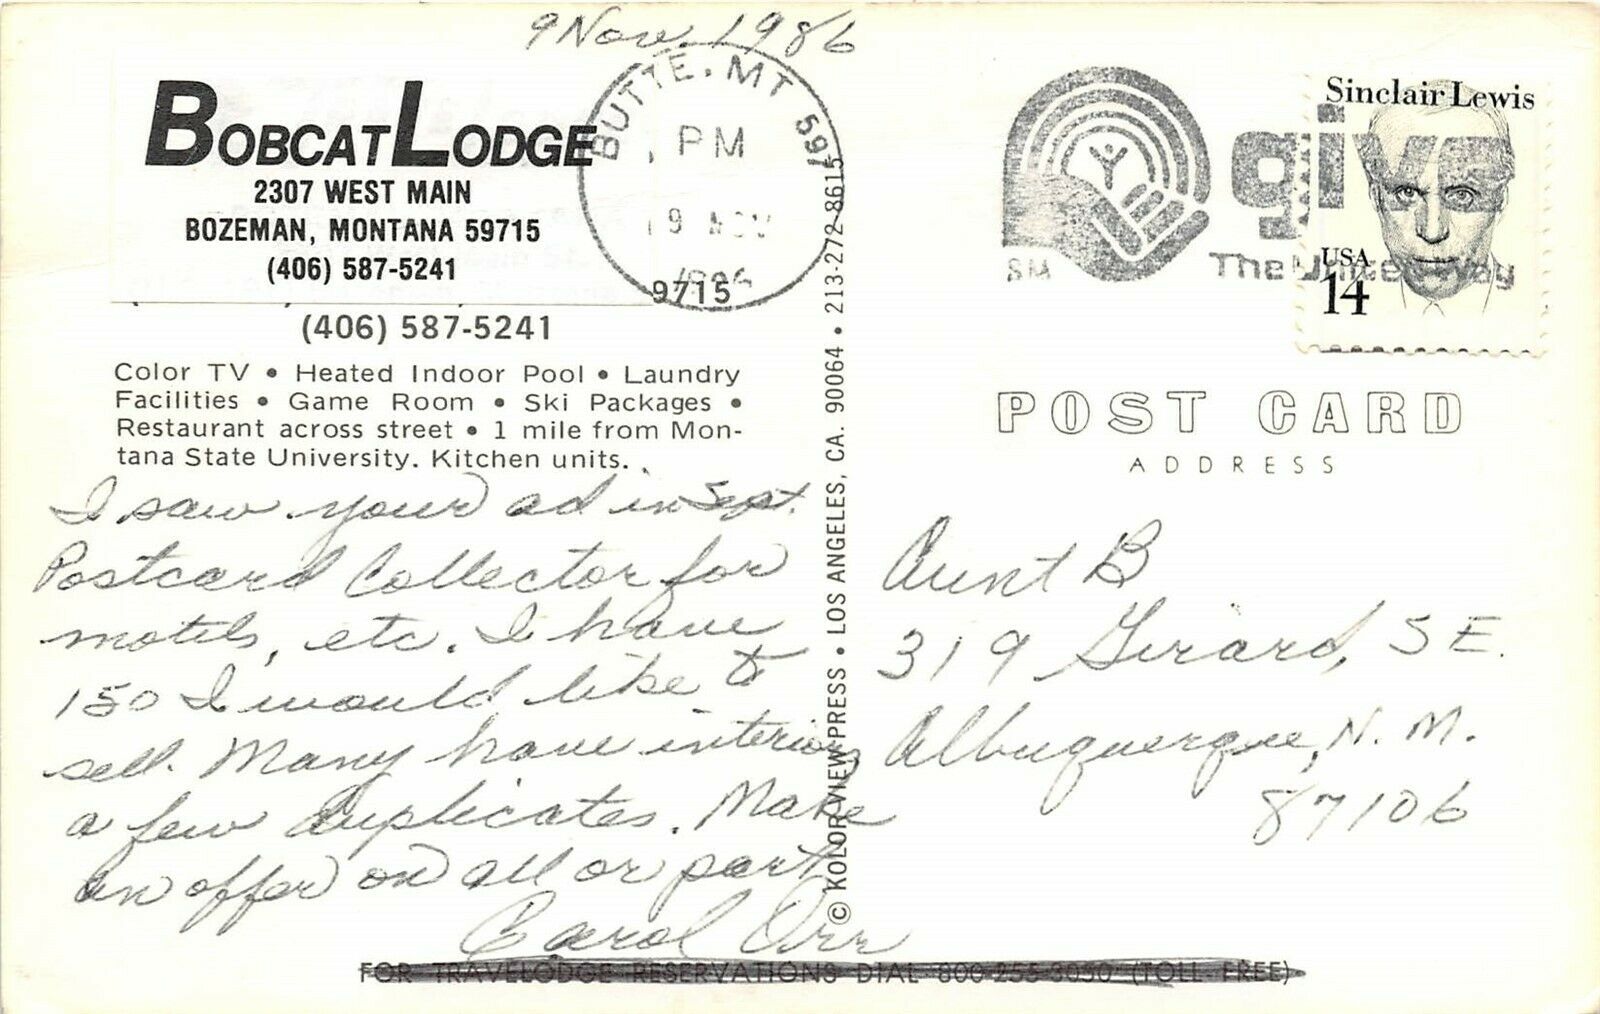 9 Nov. 1986
BOBCAT LODGE
2307 WEST MAIN
BOZEMAN, MONTANA 59715
(406) 587-5241
9715
(406) 587-5241
Color TV • Heated Indoor Pool • Laundry
Facilities • Game Room • Ski Packages •
Restaurant across street • 1 mile from Mon-
tana State University. Kitchen units.
I saw your ad in Sept.
Postcard Collector for
motels, etc. I have
150 I would like to
sell. Many have interiors
a few duplicates. Make
an offer on all or part
Carol Orr
FOR TRAVELODGE RESERVATIONS DIAL 800-255-3050 (TOLL FREE)
BUTTE, MT 597
PM
9 NOV
1986
© KOLORVIEW PRESS • LOS ANGELES, CA. 90064 • 213-272-8615
give
The United Way
SM
Sinclair Lewis
USA
14
POST CARD
ADDRESS
Aunt B
319 Girard, S E.
Albuquerque, N. M.
87106